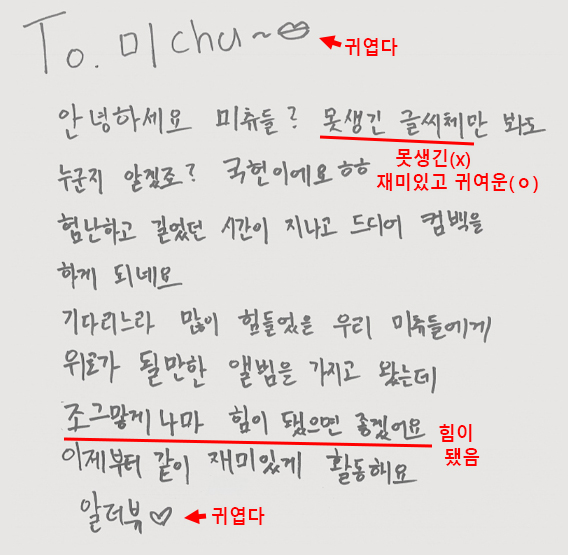 To. 미chu~
귀엽다
안녕하세요 미츄들? 못생긴 글씨체만 봐도
못생긴(x)
재미있고 귀여운(ㅇ)
누군지 알겠죠? 국헌이에요ㅎㅎ
험난하고 길었던 시간이 지나고 드디어 컴백을
하게 되네요
기다리느라 많이 힘들었을 우리 미츄들에게
위로가 될만한 앨범을 가지고 왔는데
조그맣게나마 힘이 됐으면 좋겠어요
힘이
됐음
이제부터 같이 재미있게 활동해요
알러뷰♡
귀엽다